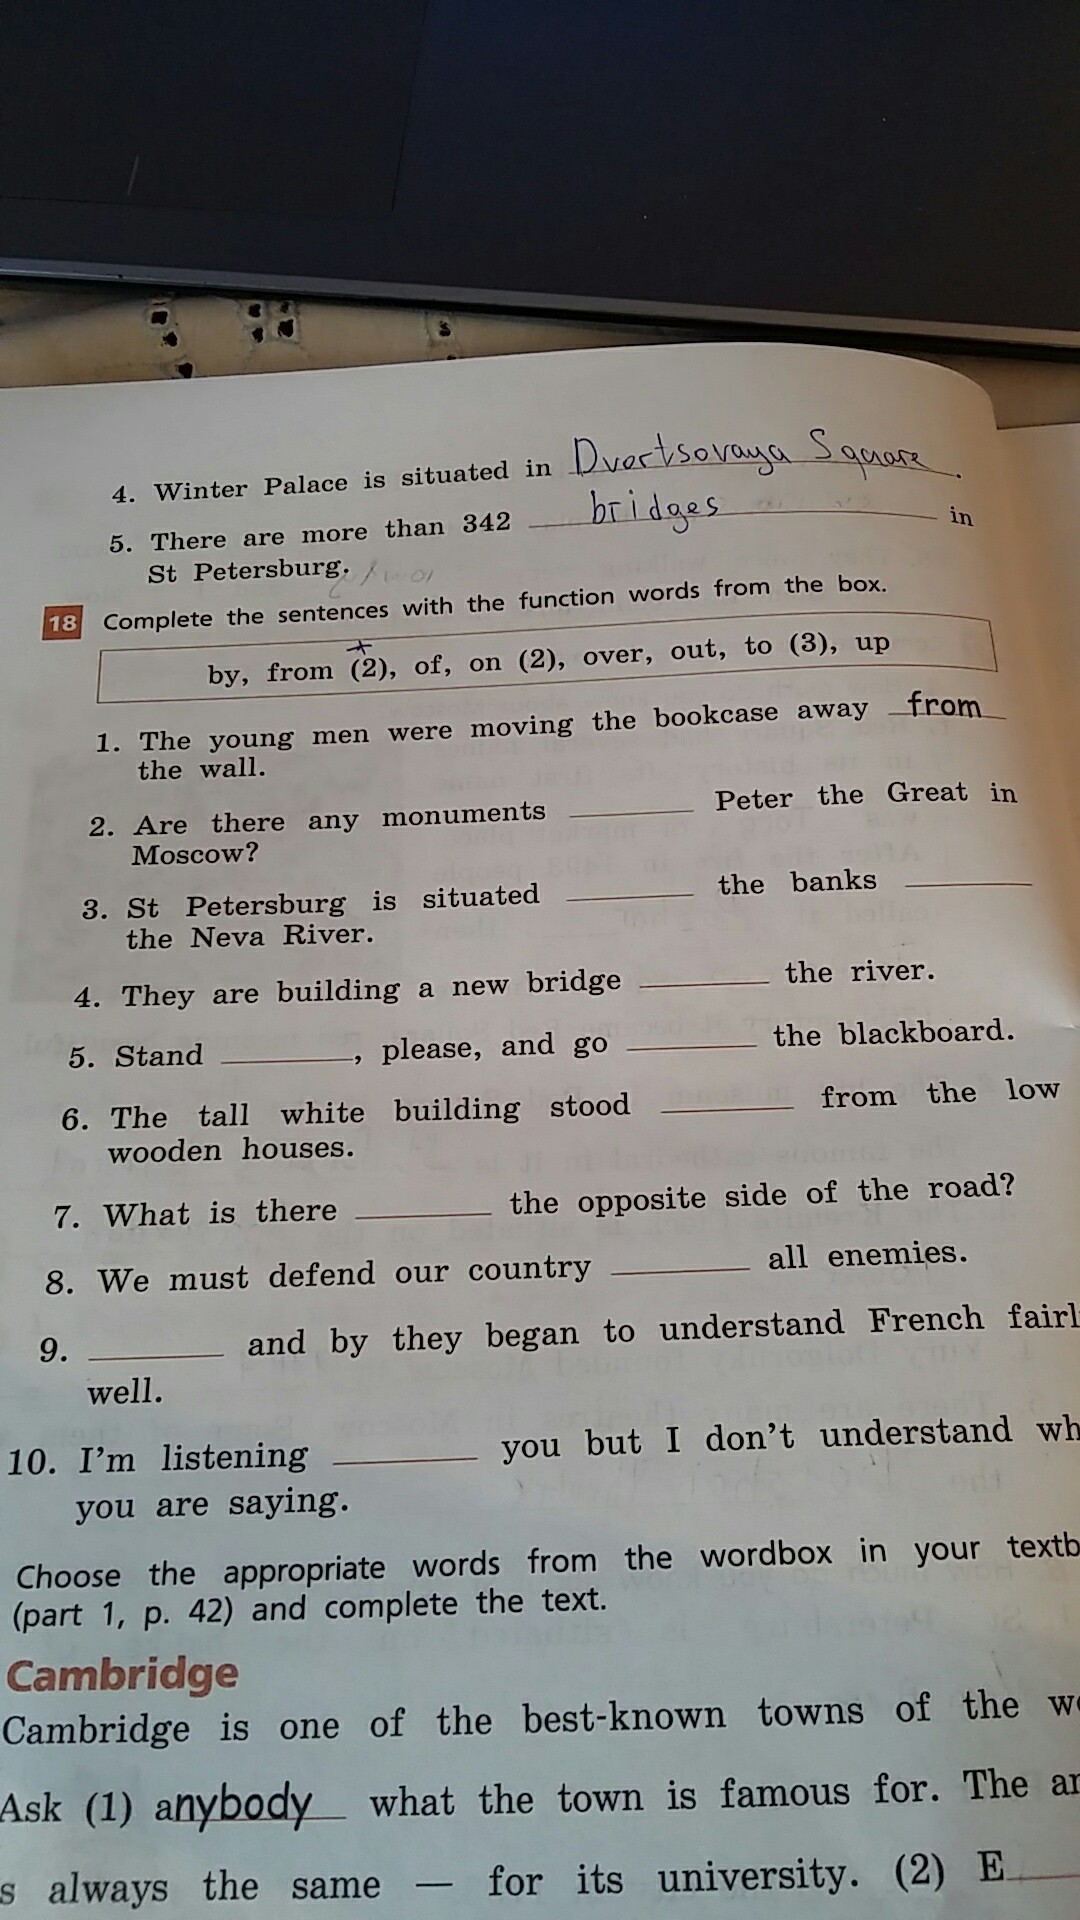 4. Winter Palace is situated in Dvortsovaya Square.
5. There are more than 342 bridges in
St Petersburg.
18 Complete the sentences with the function words from the box.
by, from (2), of, on (2), over, out, to (3), up
1. The young men were moving the bookcase away from
the wall.
2. Are there any monuments ______ Peter the Great in
Moscow?
3. St Petersburg is situated ______ the banks ______
the Neva River.
4. They are building a new bridge ______ the river.
5. Stand ______, please, and go ______ the blackboard.
6. The tall white building stood ______ from the low
wooden houses.
7. What is there ______ the opposite side of the road?
8. We must defend our country ______ all enemies.
9. ______ and by they began to understand French fairl
well.
10. I'm listening ______ you but I don't understand wh
you are saying.
Choose the appropriate words from the wordbox in your textb
(part 1, p. 42) and complete the text.
Cambridge
Cambridge is one of the best-known towns of the w
Ask (1) anybody what the town is famous for. The a
s always the same — for its university. (2) E